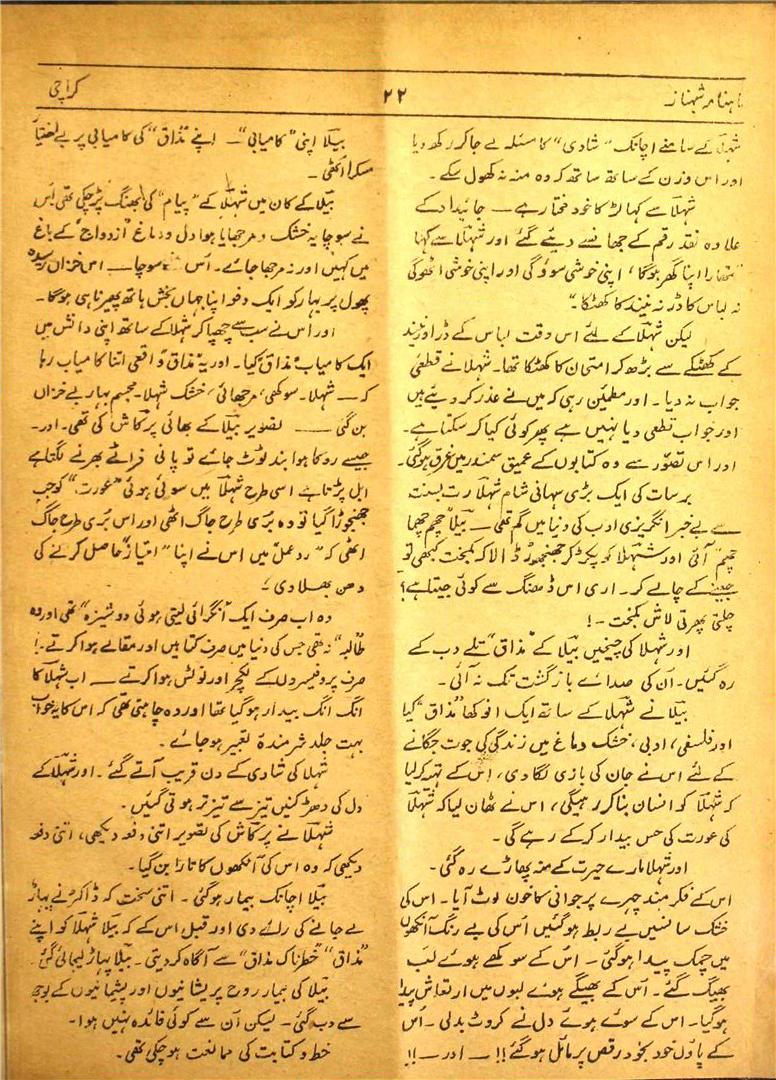 ماہنامہ شہناز
۲۲
کراچی
شہلا کے سامنے اچانک "شادی" کا مسئلہ لے جا کر رکھ دیا
اور اس وزن کے ساتھ ساتھ کہ وہ منہ نہ کھول سکے۔
شہلا سے کہا لڑکا خود مختار ہے — جائیداد کے
علاوہ نقد رقم کے جھانسے دیئے گئے اور شہلا سے کہا
تمھارا اپنا گھر ہوگا، اپنی خوشی سوؤگی اور اپنی خوشی اٹھوگی
نہ لباس کا ڈر نہ نیند کا کھٹکا۔"
لیکن شہلا کے لئے اس وقت لباس کے ڈر اور نیند
کے کھٹکے سے بڑھ کر امتحان کا کھٹکا تھا۔ شہلا نے قطعی
جواب نہ دیا۔ اور مطمئن رہی کہ میں نے عذر کر دیئے ہیں
اور جواب قطعی دیا نہیں ہے پھر کوئی کیا کر سکتا ہے۔
اور اس تصوّر سے وہ کتابوں کے عمیق سمندر میں غرق ہوگئی۔
برسات کی ایک بڑی سہانی شام شہلا رت بسنت
سے بے خبر انگریزی ادب کی دنیا میں گم تھی — بیلا چھم چھما
چھم آئی اور شہلا کو پکڑ کر جھنجھوڑ ڈالا کہ کمبخت کبھی تو
جینے کے چالے کر۔ اری اس ڈھنگ سے کوئی جیتا ہے؟
چلتی پھرتی لاش کمبخت۔!
اور شہلا کی چیخیں بیلا کے "مذاق" تلے دب کے
رہ گئیں۔ اُن کی صدائے بازگشت تک نہ آئی۔
بیلا نے شہلا کے ساتھ ایک انوکھا "مذاق" کیا
اور فلسفی، ادبی، خشک دماغ میں زندگی کی جوت جگانے
کے لئے اس نے جان کی بازی لگا دی، اس کے تہہ کر لیا
کہ شہلا کو انسان بنا کر رہیگی، اس نے ٹھان لیا کہ شہلا
کی عورت کی حس بیدار کر کے رہے گی۔
اور شہلا مارے حیرت کے منہ پھاڑے رہ گئی۔
اس کے فکر مند چہرے پر جوانی کا خون لوٹ آیا۔ اس کی
خشک سانسیں بے ربط ہوگئیں اُس کی بے رنگ آنکھوں
میں چمک پیدا ہوگئی۔ اس کے سوکھے ہوئے لب
بھیگ گئے۔ اُس کے بھیگے ہوئے لبوں میں ارتعاش پیدا
ہوگیا۔ اس کے سوئے ہوئے دل نے کروٹ بدلی۔ اُس
کے پاؤں خود بخود رقص پر مائل ہوگئے!! — اور —!!
بیلا اپنی "کامیابی" — اپنے "مذاق" کی کامیابی پر بے اختیار
مسکرا اُٹھی۔
بیلا کے کان میں شہلا کے "پیام" کی بھنک پڑ چکی تھی اُس
نے سوچا یہ خشک و مرجھایا ہوا دل و دماغ "ازدواج" کے باغ
میں کہیں اور نہ مرجھا جائے۔ اُس نے سوچا — اس خزاں رسیدہ
پھول پر بہار کو ایک دفعہ اپنا جہاں بخش ہاتھ پھیرنا ہی ہوگا۔
اور اس نے سب سے چھپا کر شہلا کے ساتھ اپنی دانش میں
ایک کامیاب مذاق کیا۔ اور یہ مذاق واقعی اتنا کامیاب رہا
کہ — شہلا۔ سوکھی، مرجھائی، خشک شہلا۔ مجسم بہار بے خزاں
بن گئی — تصویر بیلا کے بھائی پرکاش کی تھی۔ اور۔
جیسے روکا ہوا بند ٹوٹ جائے تو پانی فراٹے بھرنے لگتا ہے
ابل پڑتا ہے اسی طرح شہلا میں سوئی ہوئی "عورت" کو جب
جھنجوڑا گیا تو وہ بُری طرح جاگ اٹھی اور اس بُری طرح جاگ
اٹھی کہ "ردعمل" میں اس نے اپنا "امتیاز" حاصل کرنے کی
دھن بھلا دی۔
وہ اب صرف ایک "انگڑائی لیتی ہوئی دوشیزہ" تھی اور وہ
طالبہ" نہ تھی جس کی دنیا میں صرف کتابیں اور مقالے ہوا کرتے۔!
صرف پروفیسروں کے لکچر اور نوٹس ہوا کرتے — اب شہلا کا
انگ انگ بیدار ہوگیا تھا اور وہ چاہتی تھی کہ اس کا یہ خواب
بہت جلد شرمندۂ تعبیر ہو جائے۔
شہلا کی شادی کے دن قریب آتے گئے۔ اور شہلا کے
دل کی دھڑکنیں تیز سے تیز تر ہوتی گئیں۔
شہلا نے پرکاش کی تصویر اتنی دفعہ دیکھی، اتنی دفعہ
دیکھی کہ وہ اس کی آنکھوں کا تارا بن گیا۔
بیلا اچانک بیمار ہوگئی۔ اتنی سخت کہ ڈاکٹر نے پہاڑ
لے جانے کی رائے دی اور قبل اس کے کہ بیلا شہلا کو اپنے
"مذاق" "خطرناک مذاق" سے آگاہ کر دیتی۔ بیلا پہاڑ لیجائی گئی۔
بیلا کی بیمار روح پریشانیوں اور پشیمانیوں کے بوجھ
سے دب گئی۔ لیکن اُن سے کوئی فائدہ نہیں ہوا۔
خط و کتابت کی ممانعت ہو چکی تھی۔